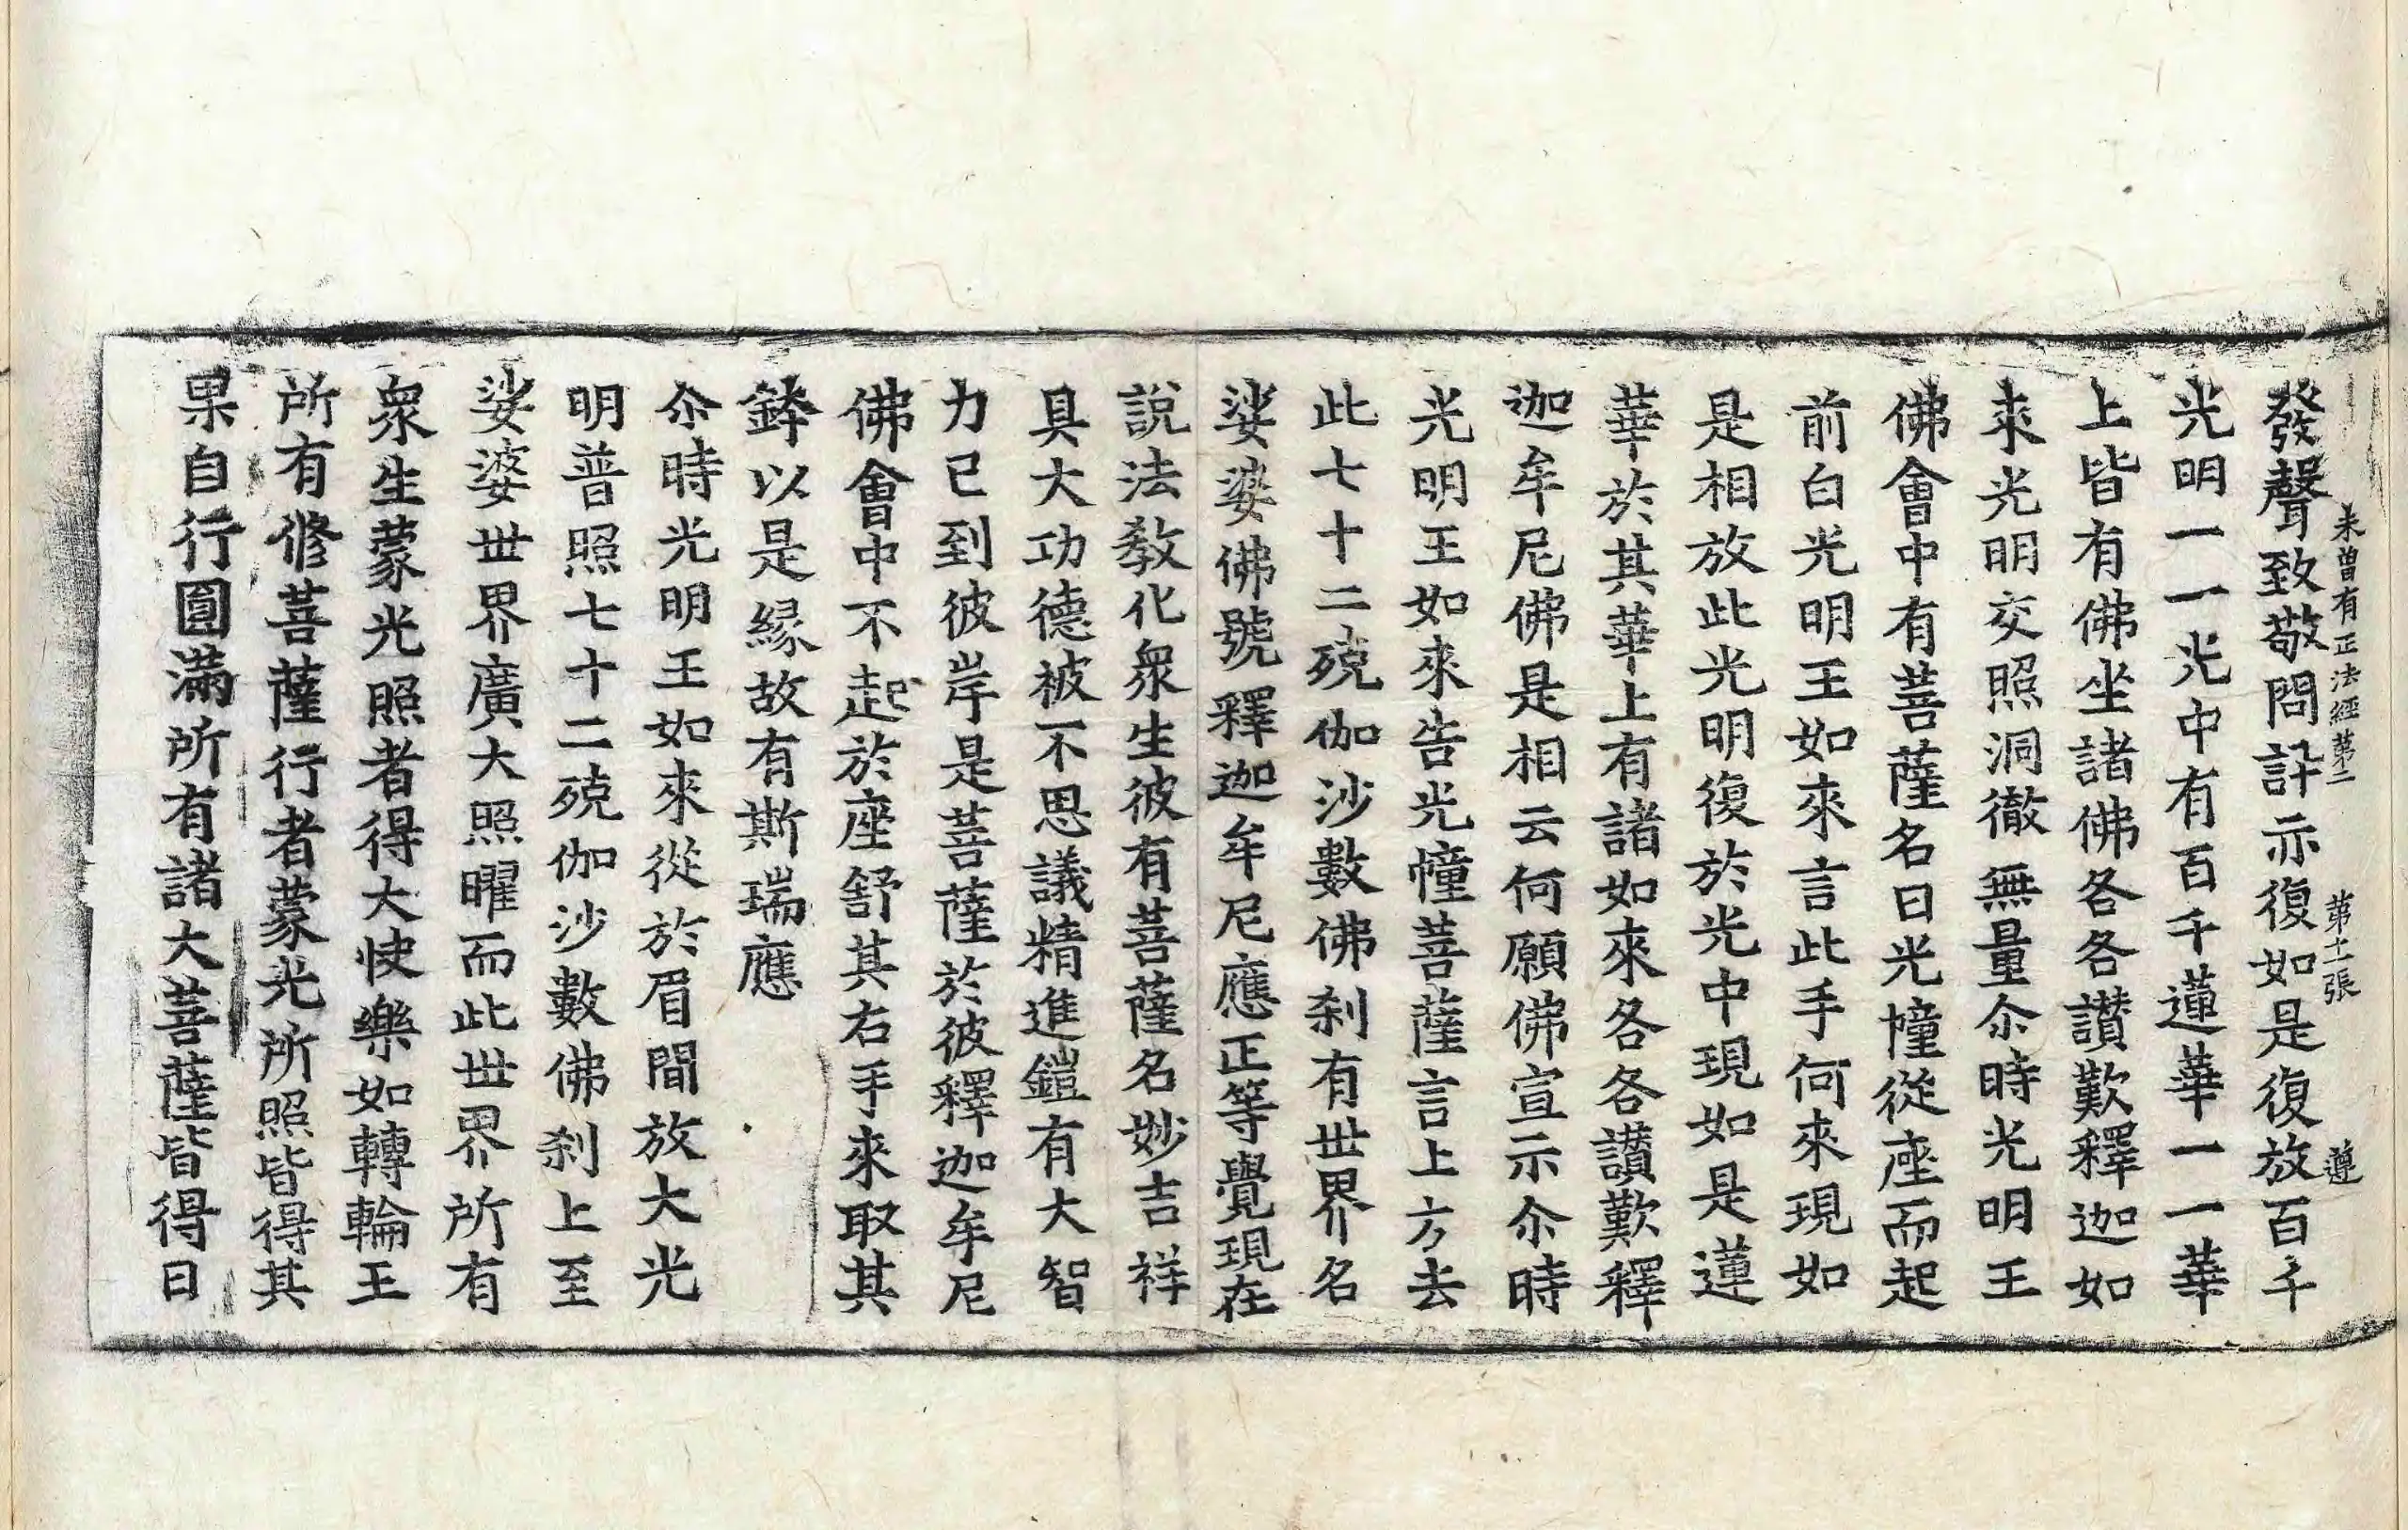 未曾有正法經第二 第十一張 遵
發聲致敬問訊亦復如是復放百千
光明一一光中有百千蓮華一一華
上皆有佛坐諸佛各各讃歎釋迦如
来光明交照洞徹無量尒時光明王
佛會中有菩薩名曰光幢從座而起
前白光明王如來言此手何來現如
是相放此光明復於光中現如是蓮
華於其華上有諸如來各各讃歎釋
迦牟尼佛是相云何願佛宣示尒時
光明王如來告光幢菩薩言上方去
此七十二殑伽沙數佛刹有世界名
娑婆佛號釋迦牟尼應正等覺現在
說法教化衆生彼有菩薩名妙吉祥
具大功德被不思議精進鎧有大智
力已到彼岸是菩薩於彼釋迦牟尼
佛會中不起於座舒其右手來取其
鉢以是縁故有斯瑞應
尒時光明王如來從於眉間放大光
明普照七十二殑伽沙數佛刹上至
娑婆世界廣大照曜而此世界所有
衆生蒙光照者得大快樂如轉輪王
所有修菩薩行者蒙光所照皆得其
果自行圓滿所有諸大菩薩皆得日